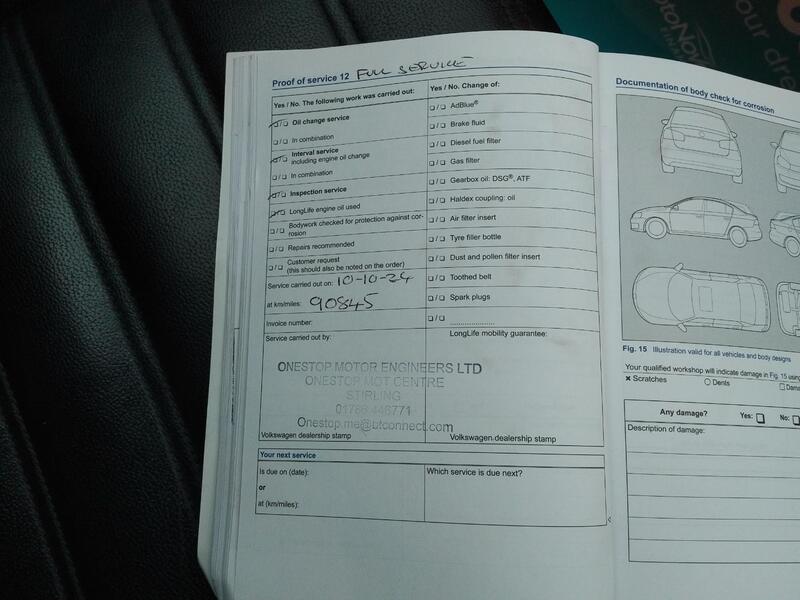 Proof of service 12 FULL SERVICE
Yes / No. The following work was carried out:
❑/❑ Oil change service
❑/❑ In combination
❑/❑ Interval service
including engine oil change
❑/❑ In combination
❑/❑ Inspection service
❑/❑ LongLife engine oil used
❑/❑ Bodywork checked for protection against cor-
rosion
❑/❑ Repairs recommended
❑/❑ Customer request
(this should also be noted on the order)
Service carried out on: 10-10-24
at km/miles: 90845
Invoice number:
Service carried out by:
ONESTOP MOTOR ENGINEERS LTD
ONESTOP MOT CENTRE
STIRLING
01786 446771
Onestop.me@btconnect.com
Volkswagen dealership stamp
Yes / No. Change of:
❑/❑ AdBlue®
❑/❑ Brake fluid
❑/❑ Diesel fuel filter
❑/❑ Gas filter
❑/❑ Gearbox oil: DSG®, ATF
❑/❑ Haldex coupling: oil
❑/❑ Air filter insert
❑/❑ Tyre filler bottle
❑/❑ Dust and pollen filter insert
❑/❑ Toothed belt
❑/❑ Spark plugs
❑/❑ ....................
LongLife mobility guarantee:
Volkswagen dealership stamp
Your next service
Is due on (date):
or
at (km/miles):
Which service is due next?
Documentation of body check for corrosion
Fig. 15 Illustration valid for all vehicles and body designs
Your qualified workshop will indicate damage in Fig. 15 using
✖ Scratches ○ Dents ❑
Any damage? Yes: ❑ No: ❑
Description of damage: